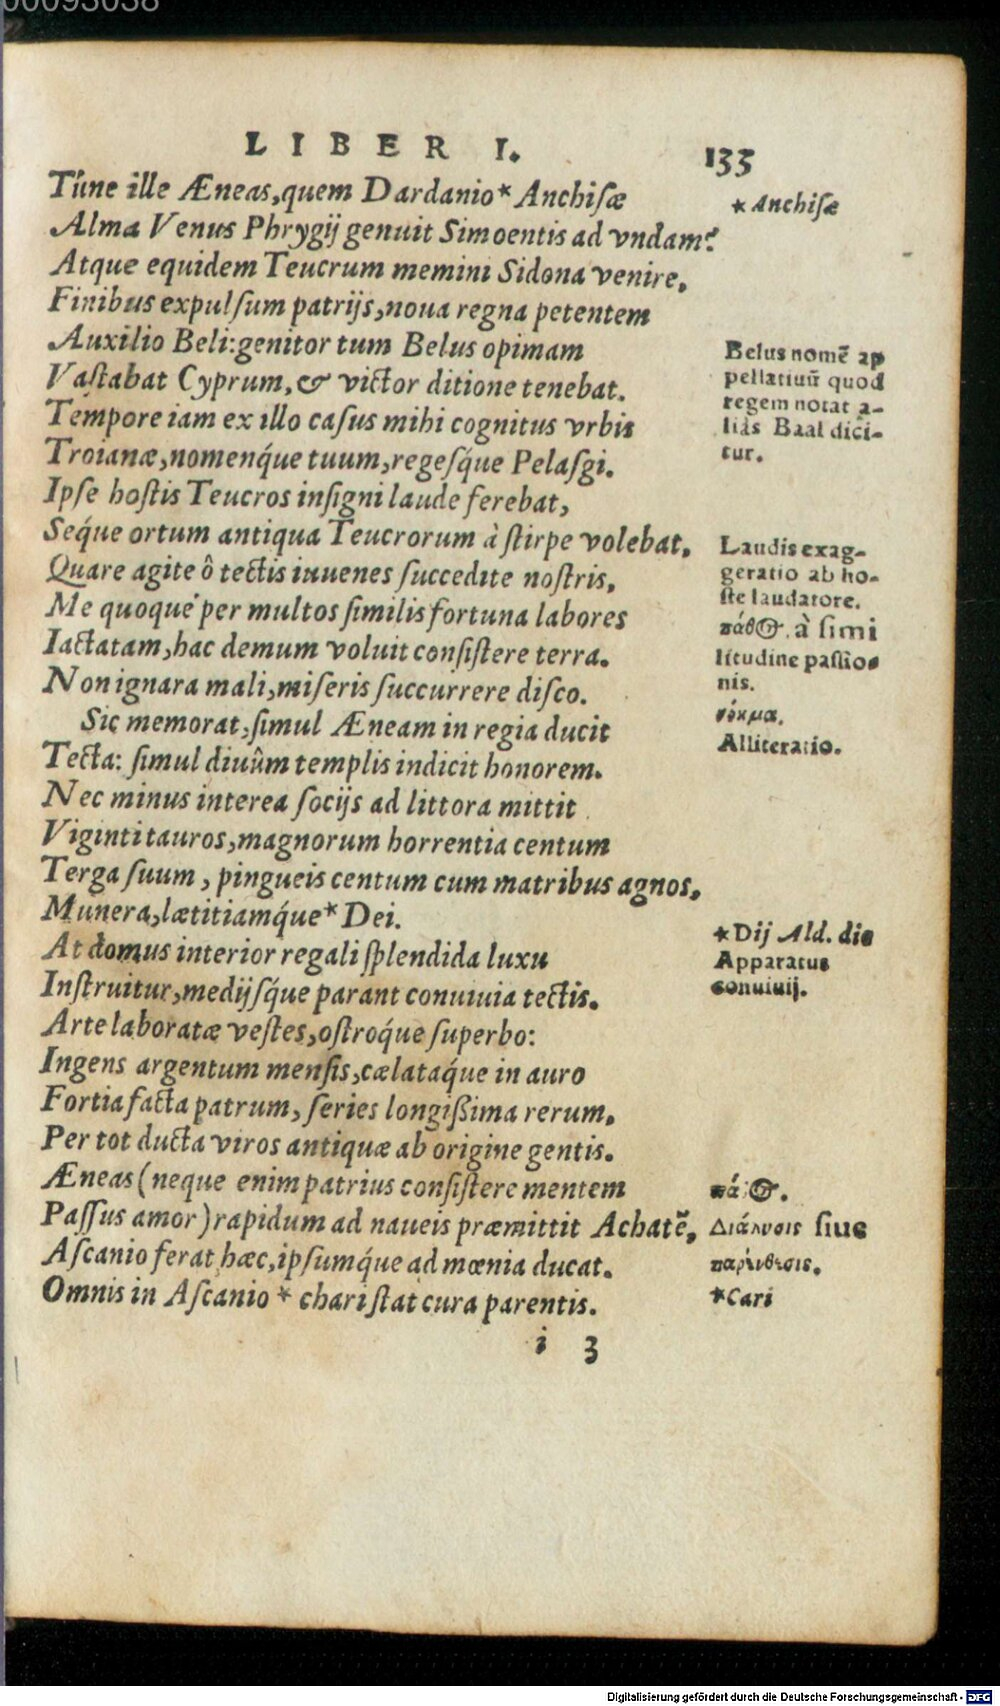 00093038
LIBER I. 133
Túne ille Æneas, quem Dardanio* Anchisæ
Alma Venus Phrygij genuit Simoentis ad vndam?
Atque equidem Teucrum memini Sidona venire,
Finibus expulsum patrijs, noua regna petentem
Auxilio Beli: genitor tum Belus opimam
Vastabat Cyprum, & victor ditione tenebat.
Tempore iam ex illo casus mihi cognitus vrbis
Troianæ, nomenq́ue tuum, regesq́ue Pelasgi.
Ipse hostis Teucros insigni laude ferebat,
Seq́ue ortum antiqua Teucrorum à stirpe volebat.
Quare agite ô tectis iuuenes succedite nostris.
Me quoque per multos similis fortuna labores
Iactatam, hac demum voluit consistere terra.
Non ignara mali, miseris succurrere disco.
Sic memorat, simul Æneam in regia ducit
Tecta: simul diuûm templis indicit honorem.
Nec minus interea socijs ad littora mittit
Viginti tauros, magnorum horrentia centum
Terga suum, pingueis centum cum matribus agnos,
Munera, lætitiamq́ue* Dei.
At domus interior regali splendida luxu
Instruitur, medijsq́ue parant conuiuia tectis.
Arte laboratæ vestes, ostroq́ue superbo:
Ingens argentum mensis, cælataq́ue in auro
Fortia facta patrum, series longißima rerum,
Per tot ducta viros antiquæ ab origine gentis.
Æneas (neque enim patrius consistere mentem
Passus amor) rapidum ad naueis præmittit Achatē,
Ascanio ferat hæc, ipsumq́ue ad mœnia ducat.
Omnis in Ascanio* chari stat cura parentis.
i 3
* Anchisæ
Belus nomē ap
pellatiuū quod
regem notat a-
liâs Baal dici-
tur.
Laudis exag-
geratio ab ho-
ste laudatore.
πάθος. à simi
litudine passio-
nis.
νόημα.
Alliteratio.
*Dij Ald. die
Apparatus
conuiuij.
πάθος.
Διάλυσις siue
παρένθεσις.
*Cari
Digitalisierung gefördert durch die Deutsche Forschungsgemeinschaft - DFG